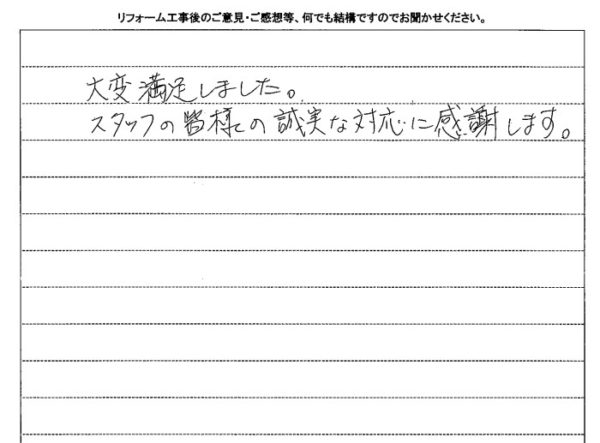 リフォーム工事後のご意見・ご感想等、何でも結構ですのでお聞かせください。
大変満足しました。
スタッフの皆様の誠実な対応に感謝します。